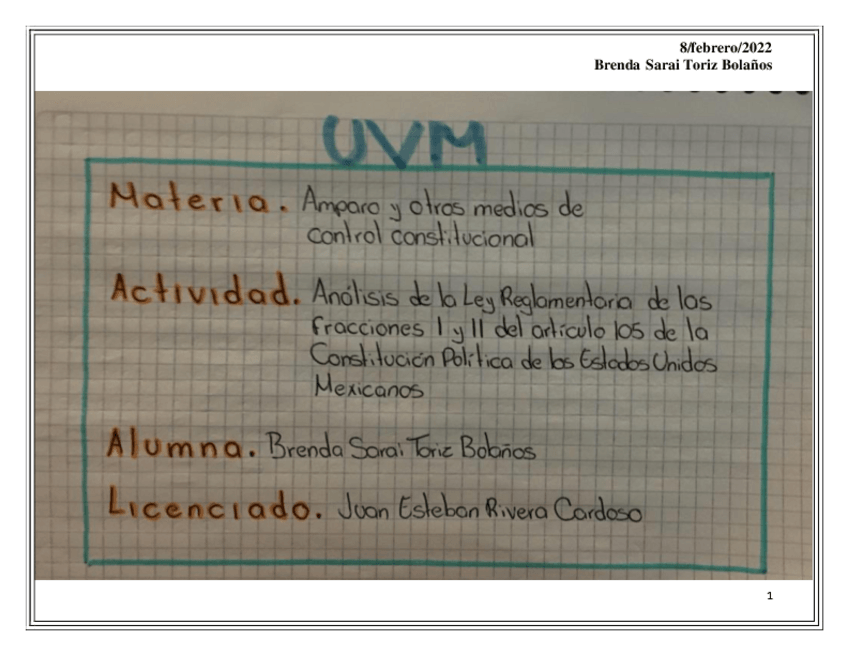 8/febrero/2022
Brenda Sarai Toriz Bolaños
UVM
Materia. Amparo y otros medios de
control constitucional
Actividad. Análisis de la Ley Reglamentaria de las
fracciones I y II del artículo 105 de la
Constitución Política de los Estados Unidos
Mexicanos
Alumna. Brenda Sarai Toriz Bolaños
Licenciado. Juan Esteban Rivera Cardoso
1